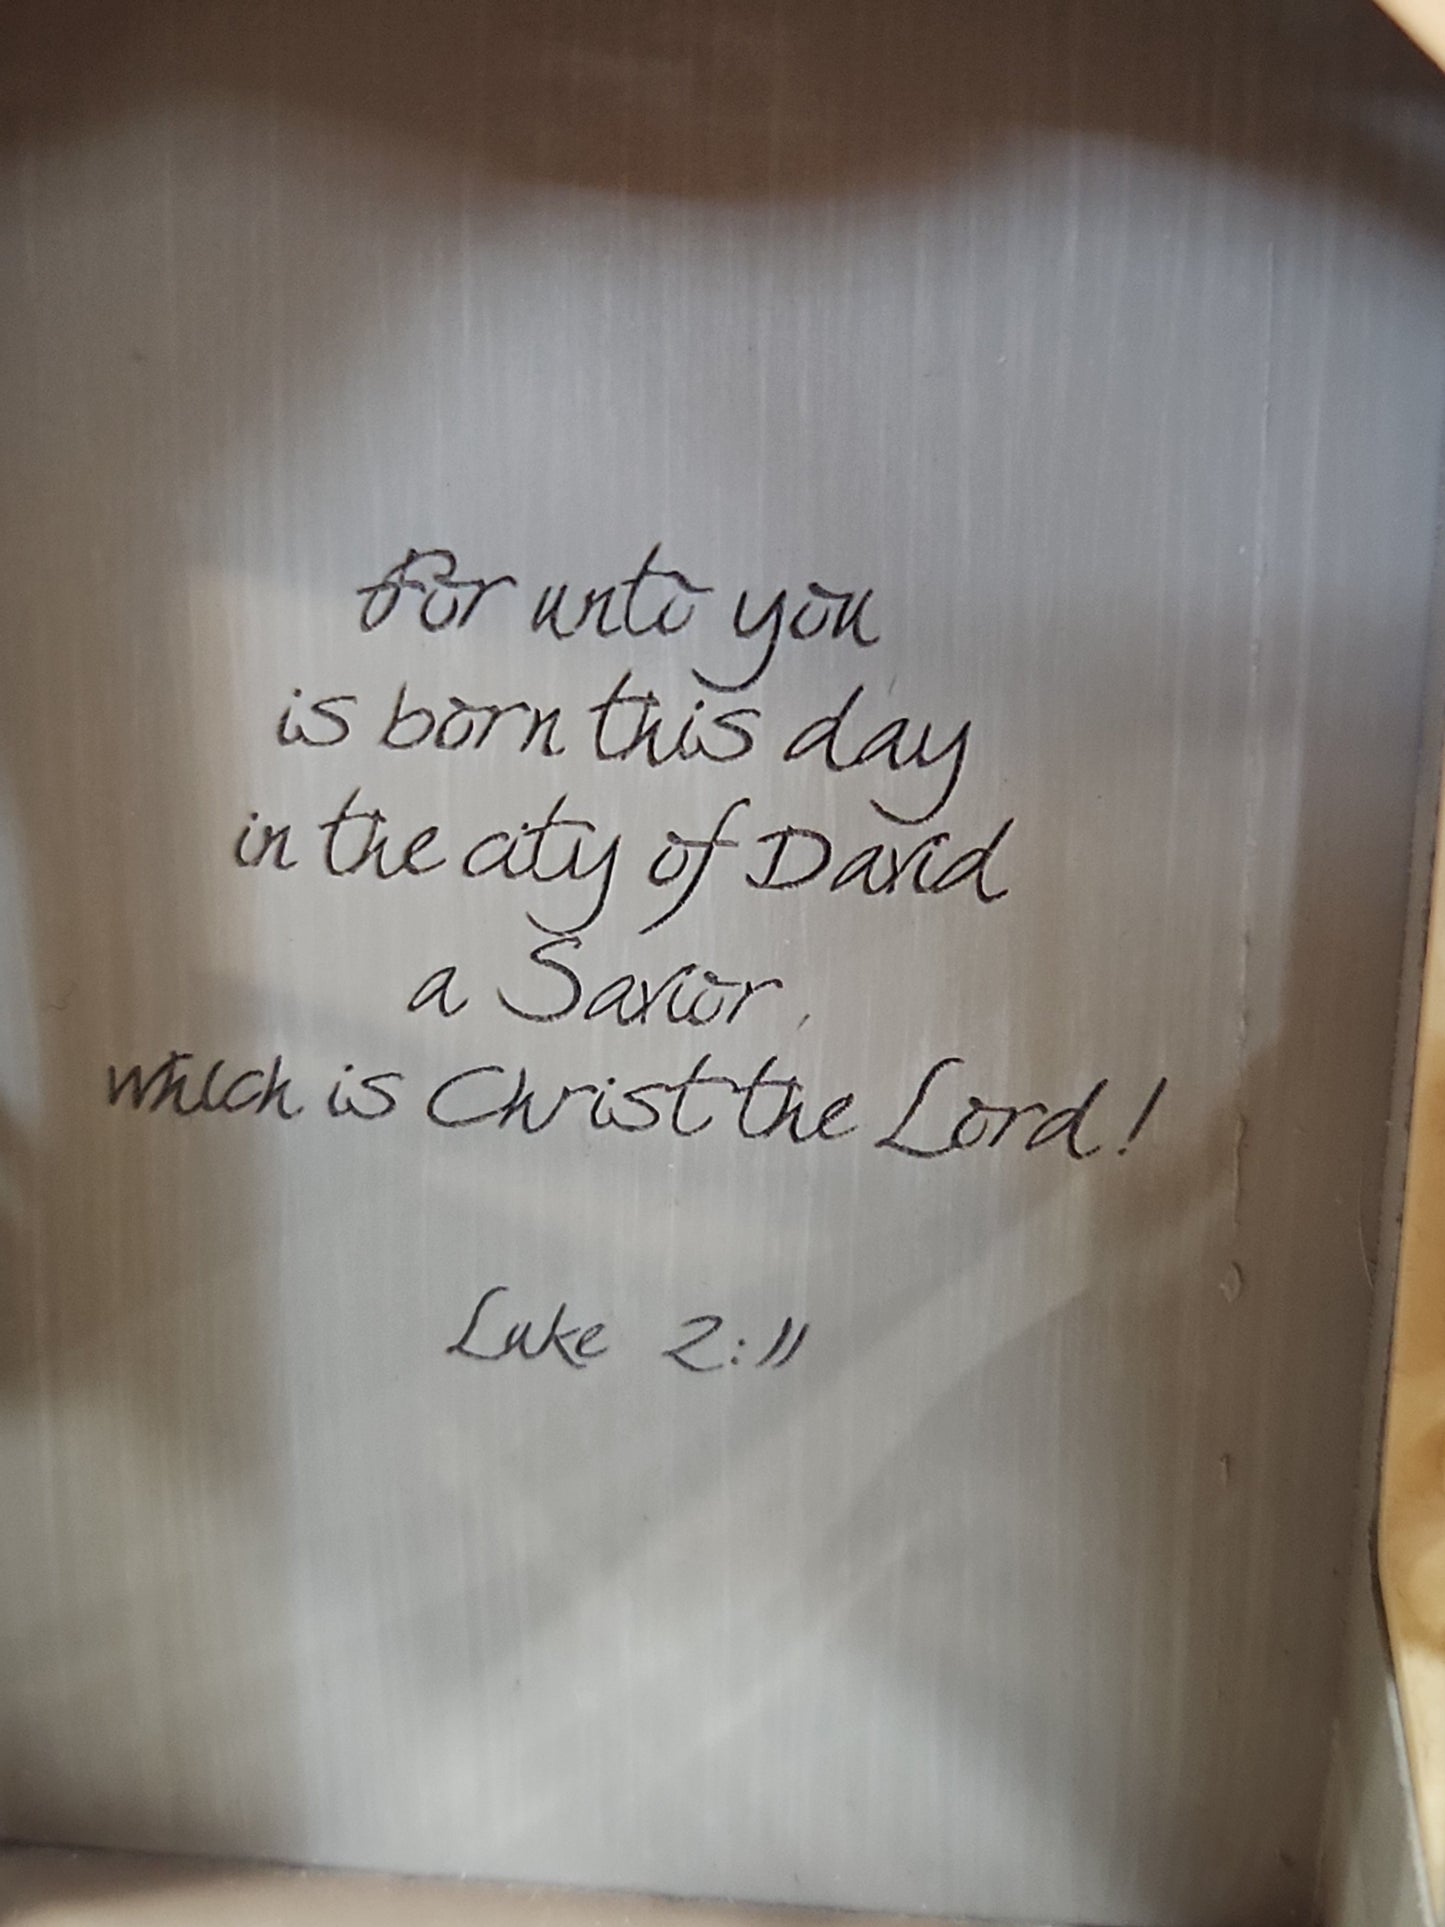 For unto you
is born this day
in the city of David
a Savior,
which is Christ the Lord!
Luke 2:11